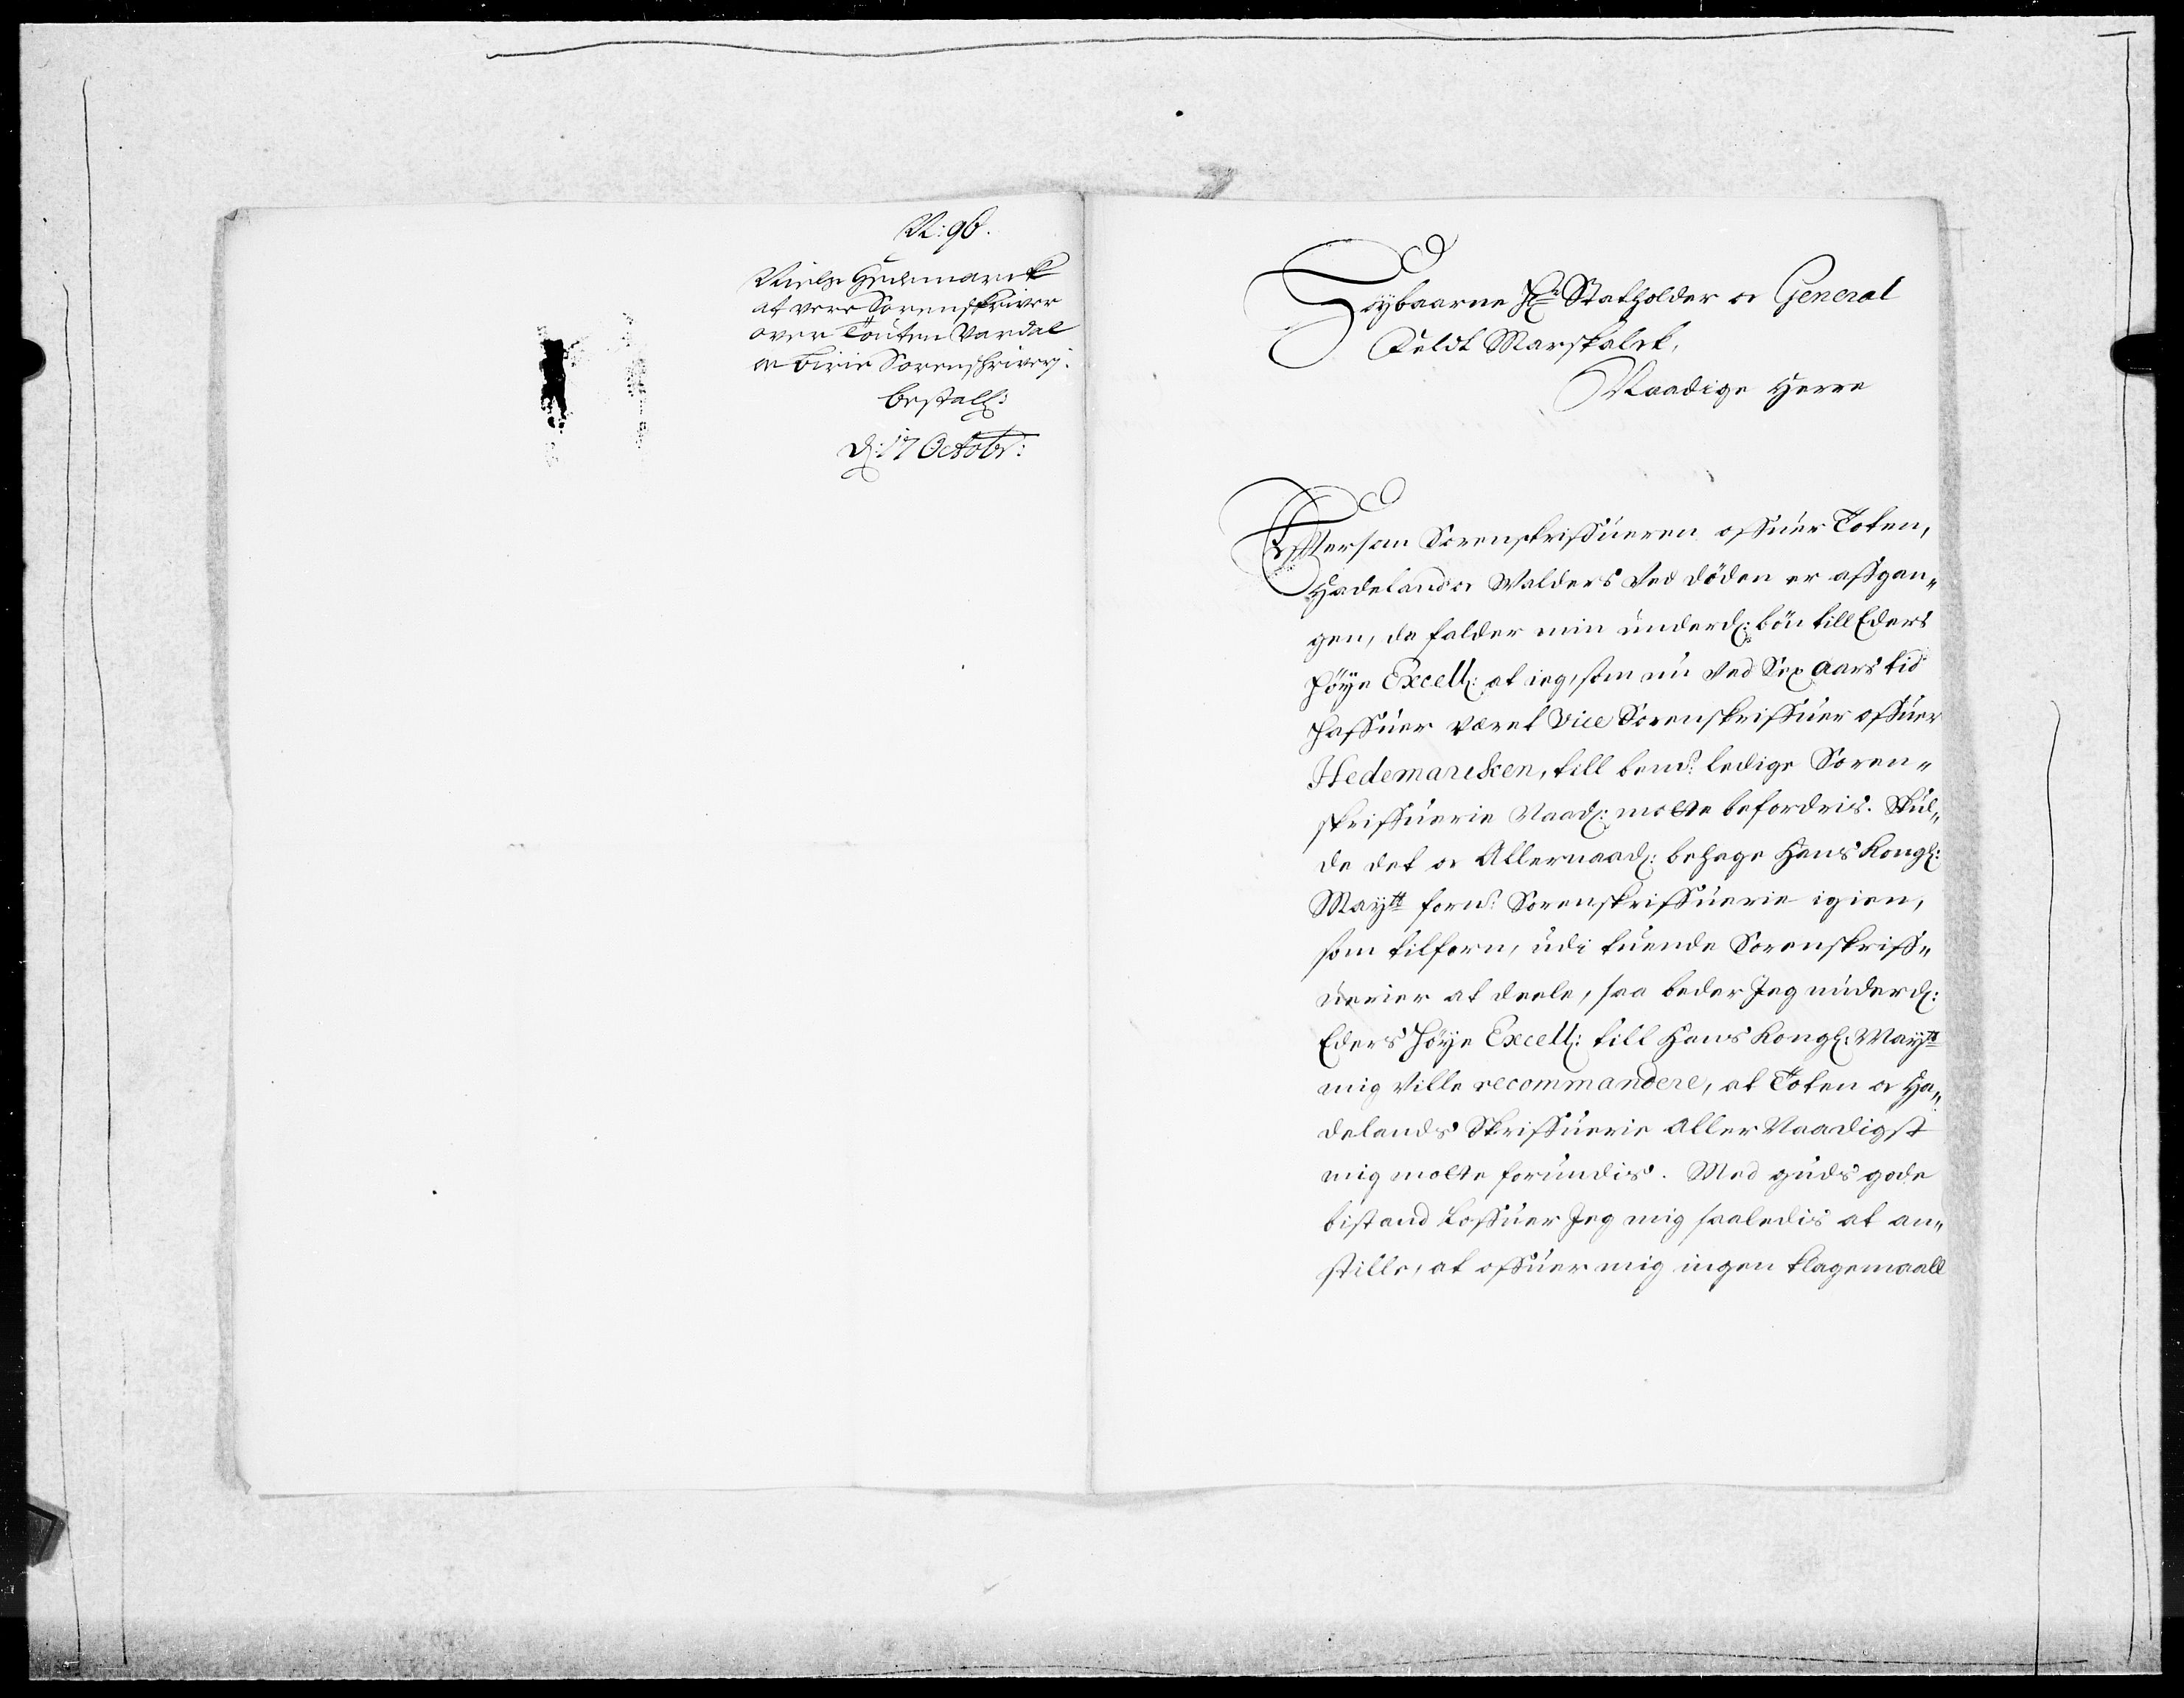 N: 96.
Niels Hedemarck
at vere Sorenskriver
over Touten Vardal
oc Birie Sorenschriverj.
bestall:
d: 17 Octobr:
Høybaarne Hr Statholder oc General
Feldt Marskalck,
Naadige Herre
Efftersom Sorenskriffueren offuer Toten,
Hadeland oc Walders Ved døden er affgan„
gen, da falder min underd: bøn till Eders
høye Excell: at ieg, som nu Ved Sex Aars tid
haffuer veret Vice Sorenskriffuer offuer
Hedemarcken, till bemt: ledige Soren„
skriffuerie Naad: motte befordris. Skul„
de det oc Allernaad: behage Hans Kongl:
Maytt fornt: Sorenskriffuerie igien,
som tilforn, udi tuende Sorenskriff„
uerier at deele, saa beder Jeg underd:
Eders høye Excell: till Hans Kongl: Maytt
mig Ville recommandere, at Toten oc Ha„
delands Skriffuerie Aller Naadigst
mig motte forundis. Med guds gode
bistand loffuer Jeg mig saaledis at an„
stille, at offuer mig ingen klagemaall